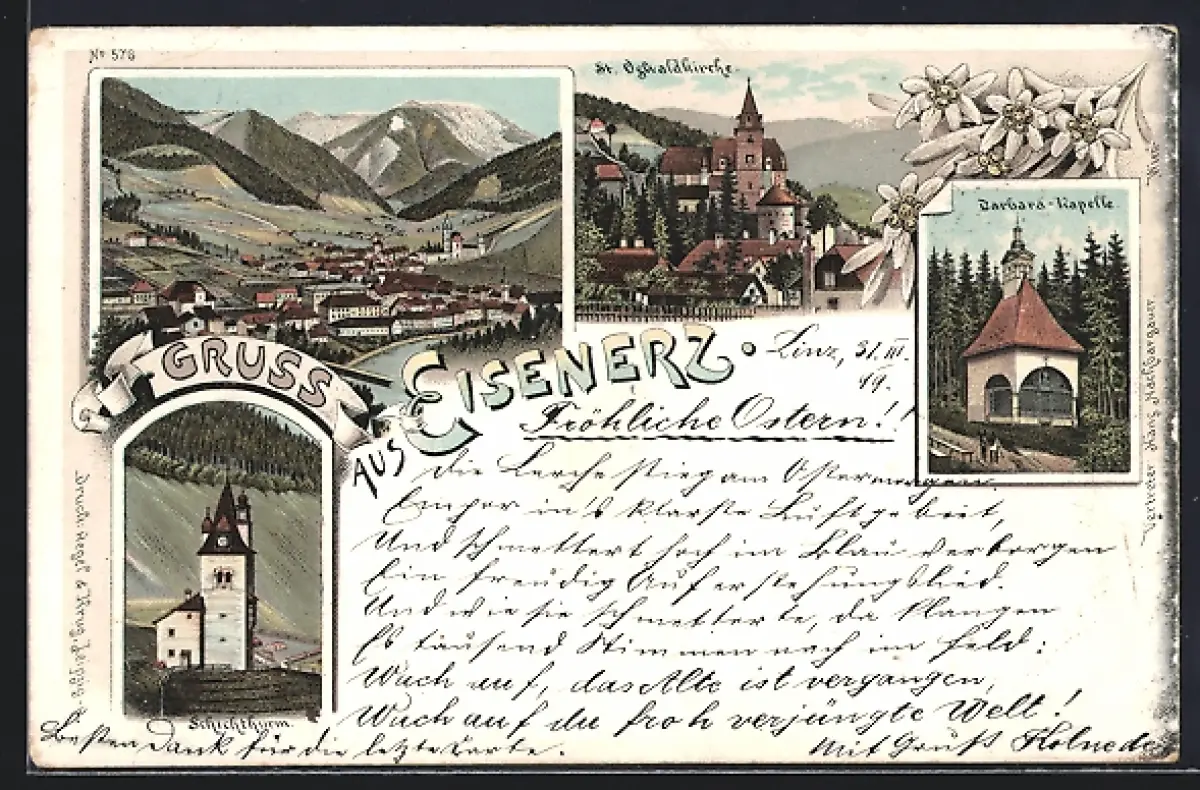 No 576
St. Oswaldkirche.
Barbara-Kapelle.
GRUSS
AUS EISENERZ.
Linz, 31./III.
99.
Fröhliche Ostern!!
Die Lerche stieg am Ostermorgen
Empor in's klarste Luftgebiet,
Und schmettert' hoch im Blau verborgen
Ein freudig Auferstehungslied.
Und wie sie schmetterte, da klangen
Es tausend Stimmen nach im Feld:
Wach auf, das Alte ist vergangen,
Wach auf du froh verjüngte Welt!
Schichtthurm.
Besten Dank für die letzte Karte.
Mit Gruß
Druck: Regel & Krug, Leipzig-R.
Verleger Hans
Wien